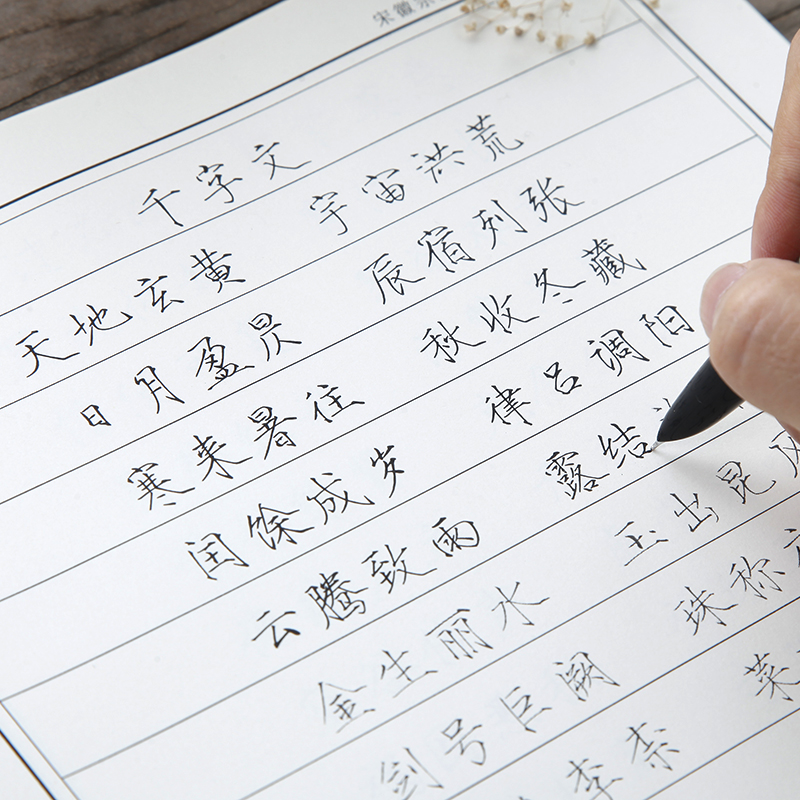 宋徽
千字文
天地玄黄 宇宙洪荒
日月盈昃 辰宿列张
寒来暑往 秋收冬藏
闰馀成岁 律吕调阳
云腾致雨 露结
金生丽水 玉出昆
剑号巨阙 珠称
李柰 菜